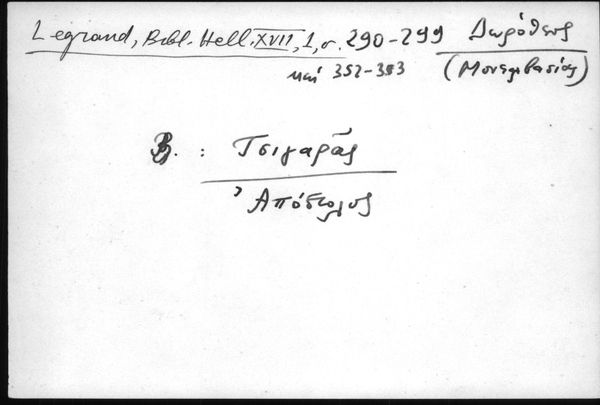 Legrand, Bibl. Hell. XVII, 1, σ. 290-299 Δωρόθεος
καί 352-353 (Μονεμβασίας)
Β. : Τσιγαρᾶς
Ἀπόστολος